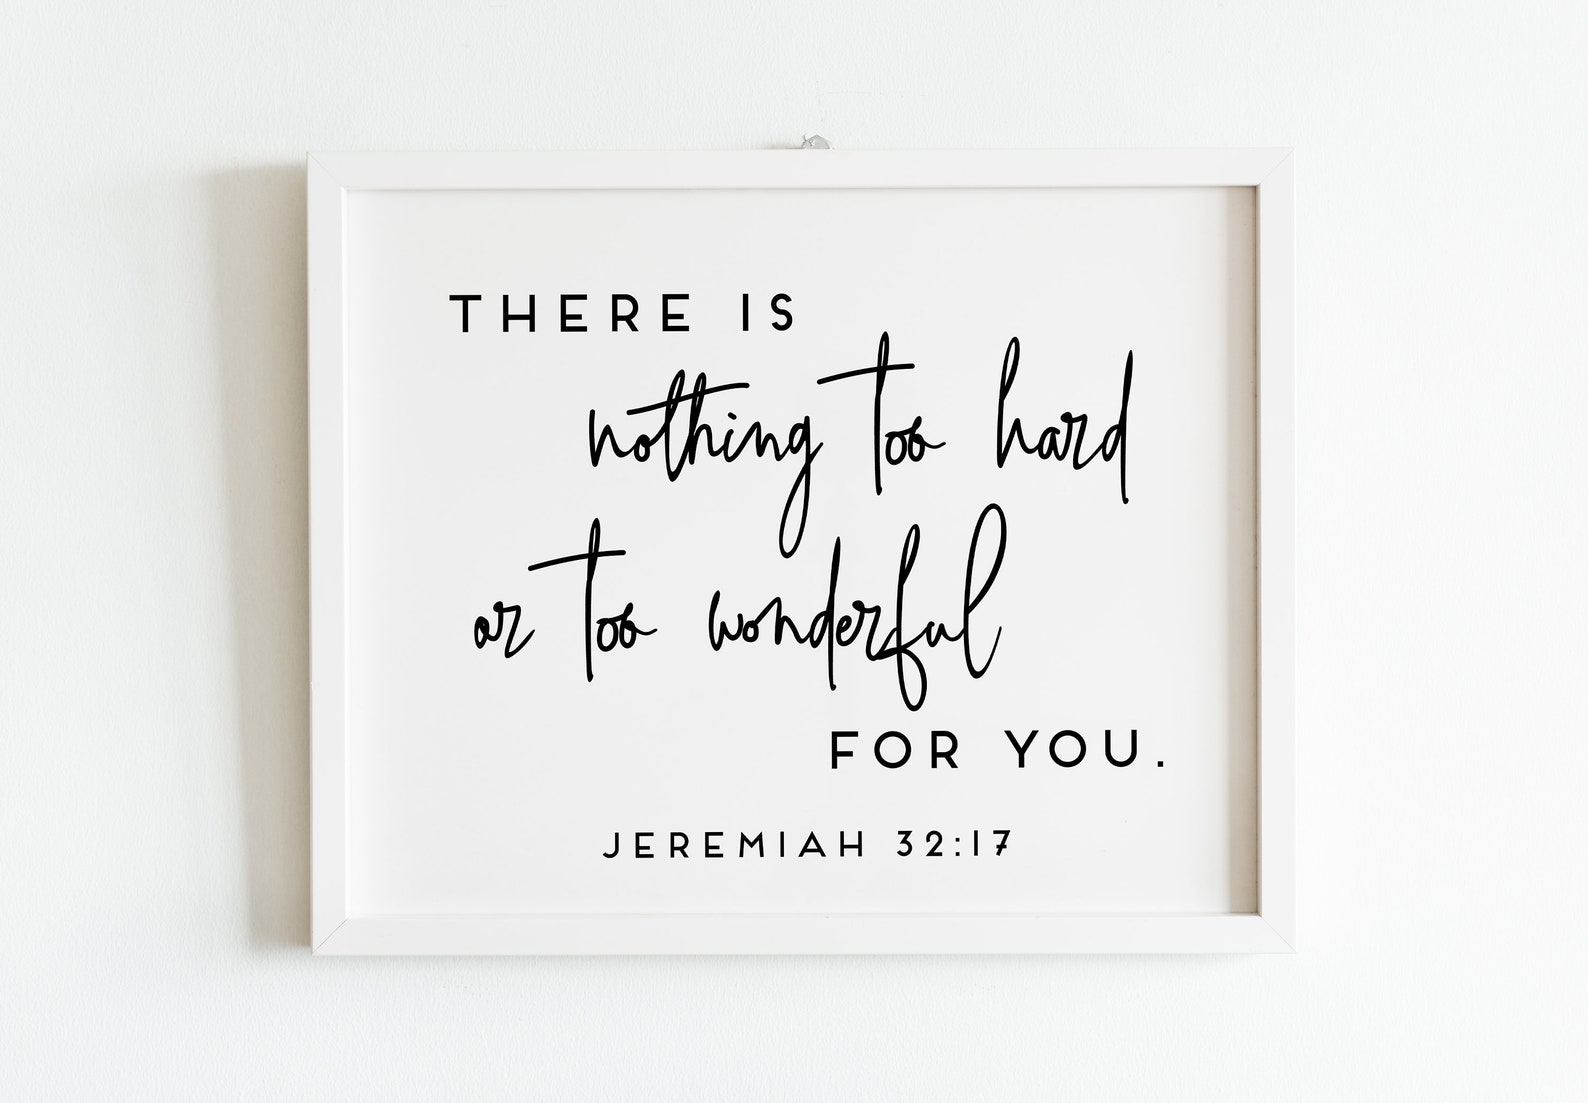 THERE IS
nothing too hard
or too wonderful
FOR YOU.
JEREMIAH 32:17